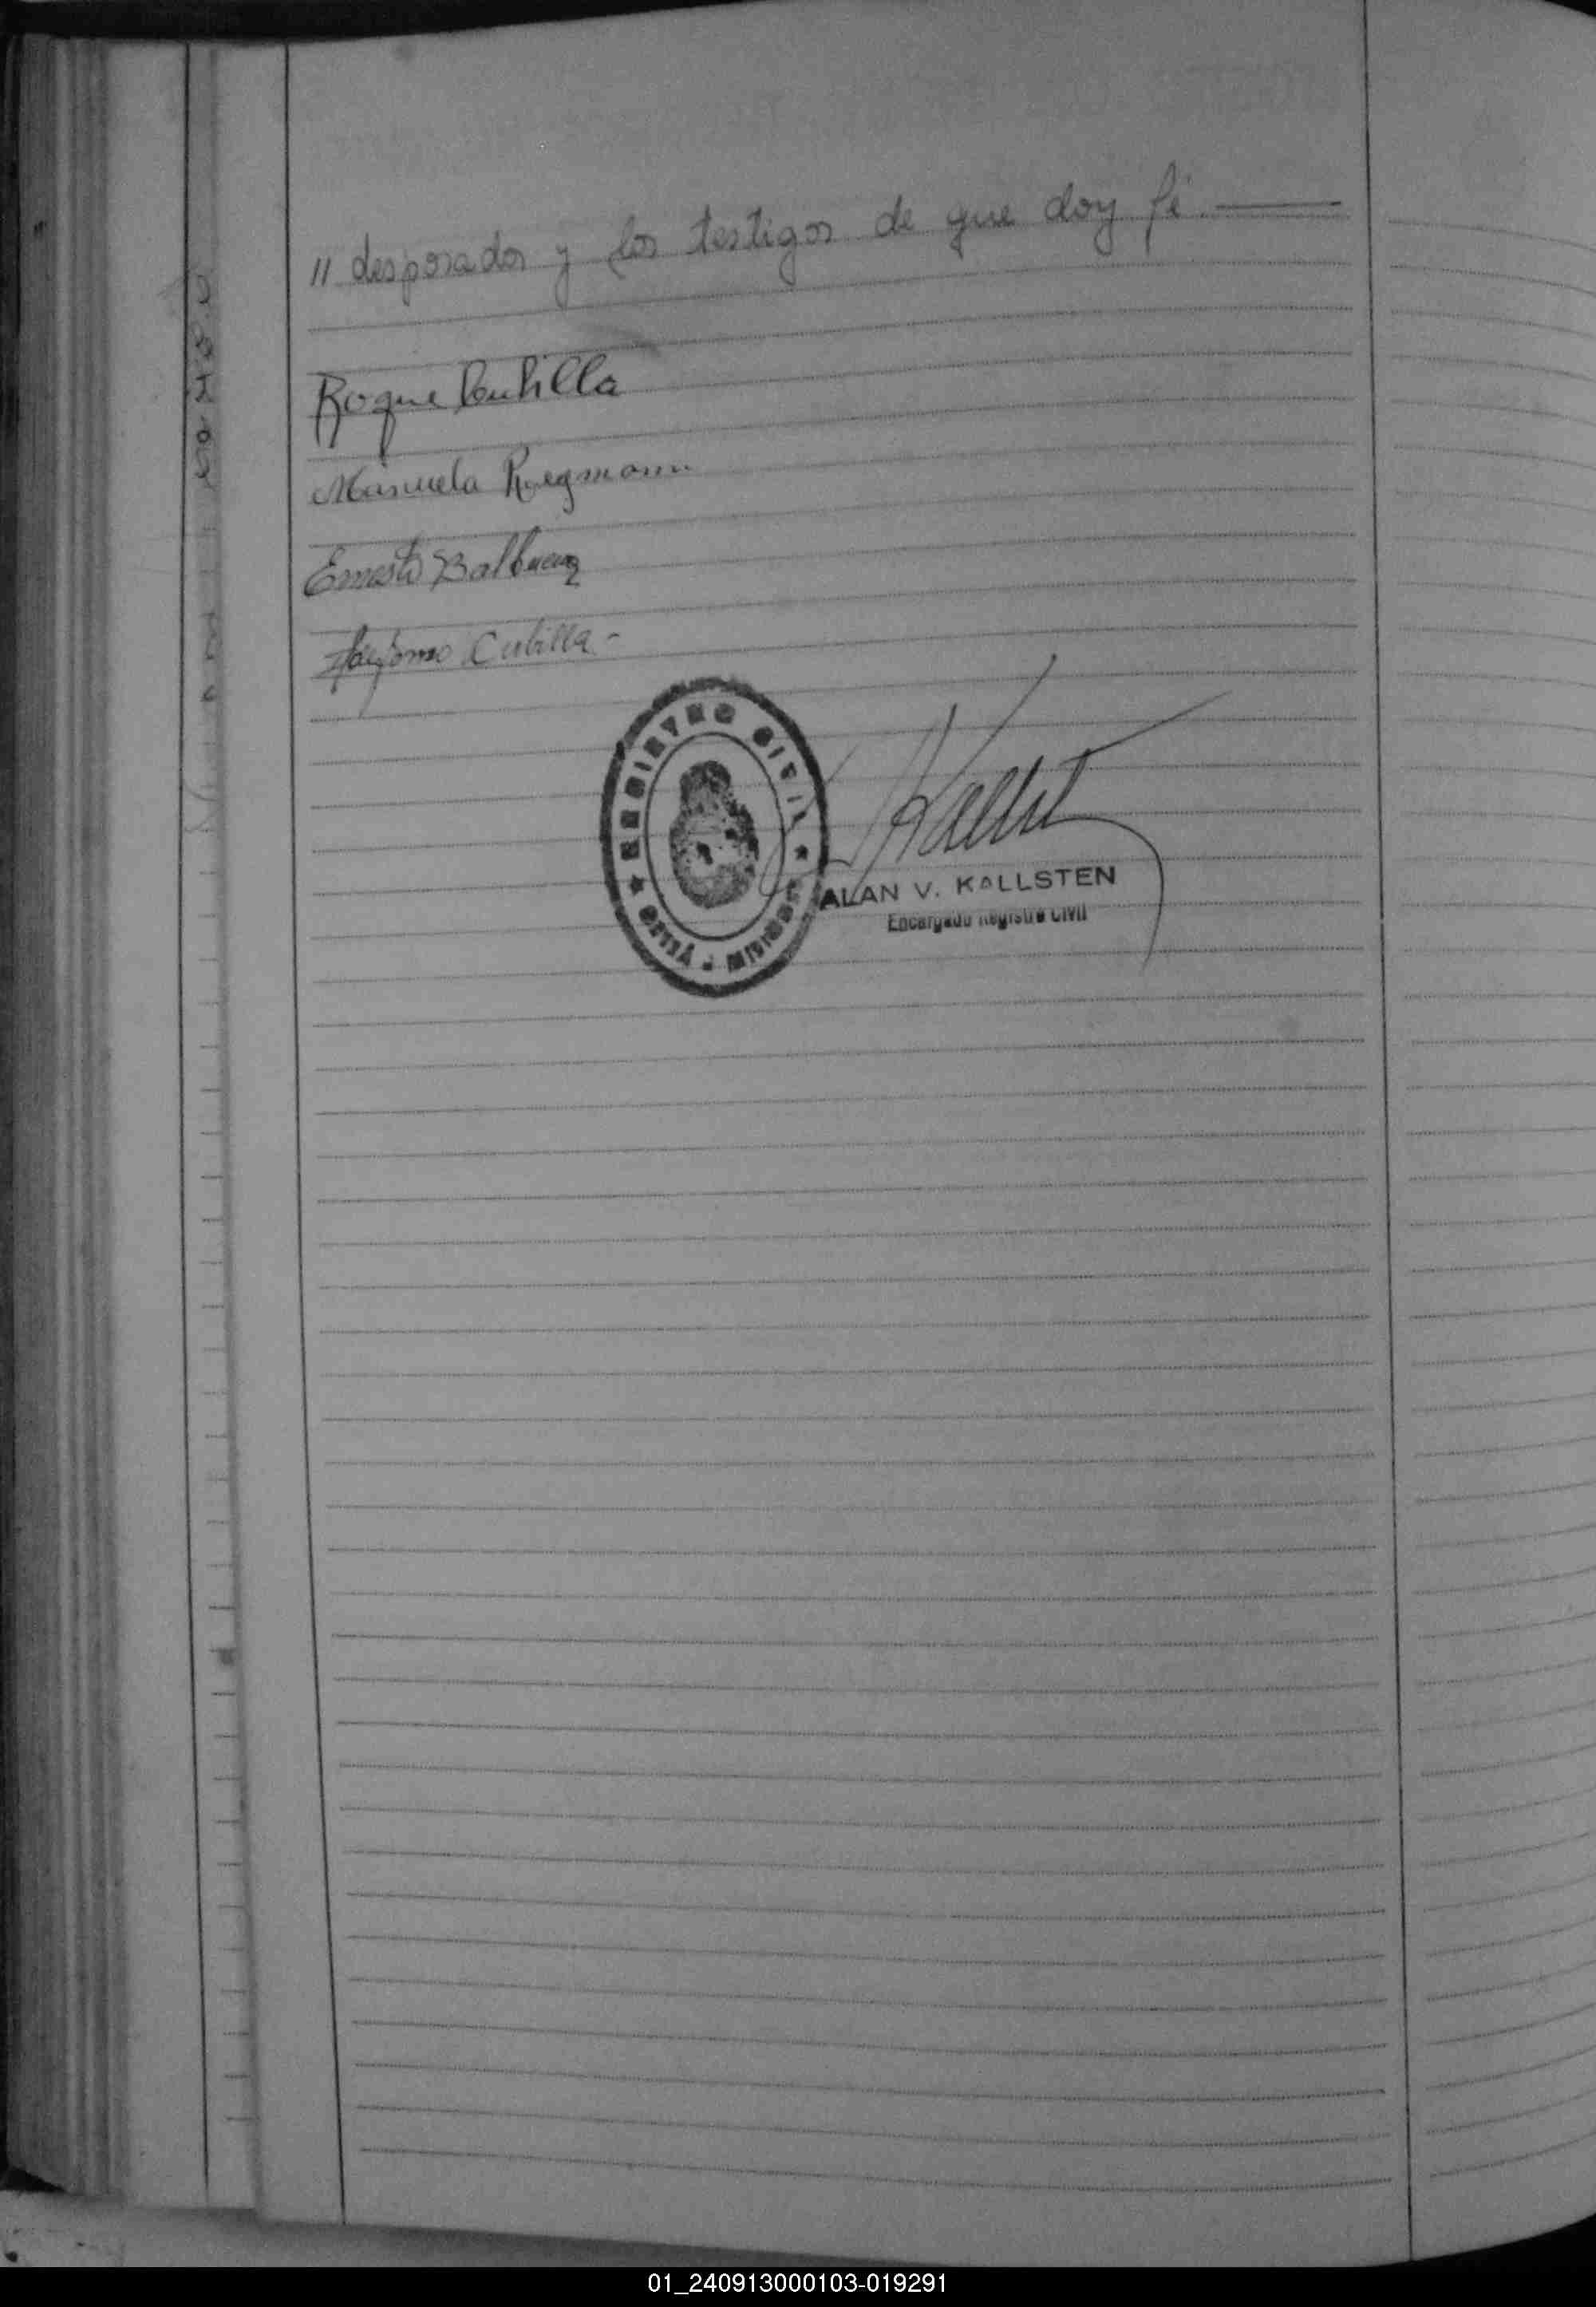 " desposados y los testigos de que doy fé.
Roque Cubilla
Manuela
Ernesto Balbuena
Ildefonso Cubilla -
REGISTRO CIVIL
MISIONES
ALAN V. KALLSTEN
Encargado Registro Civil
01_240913000103-019291